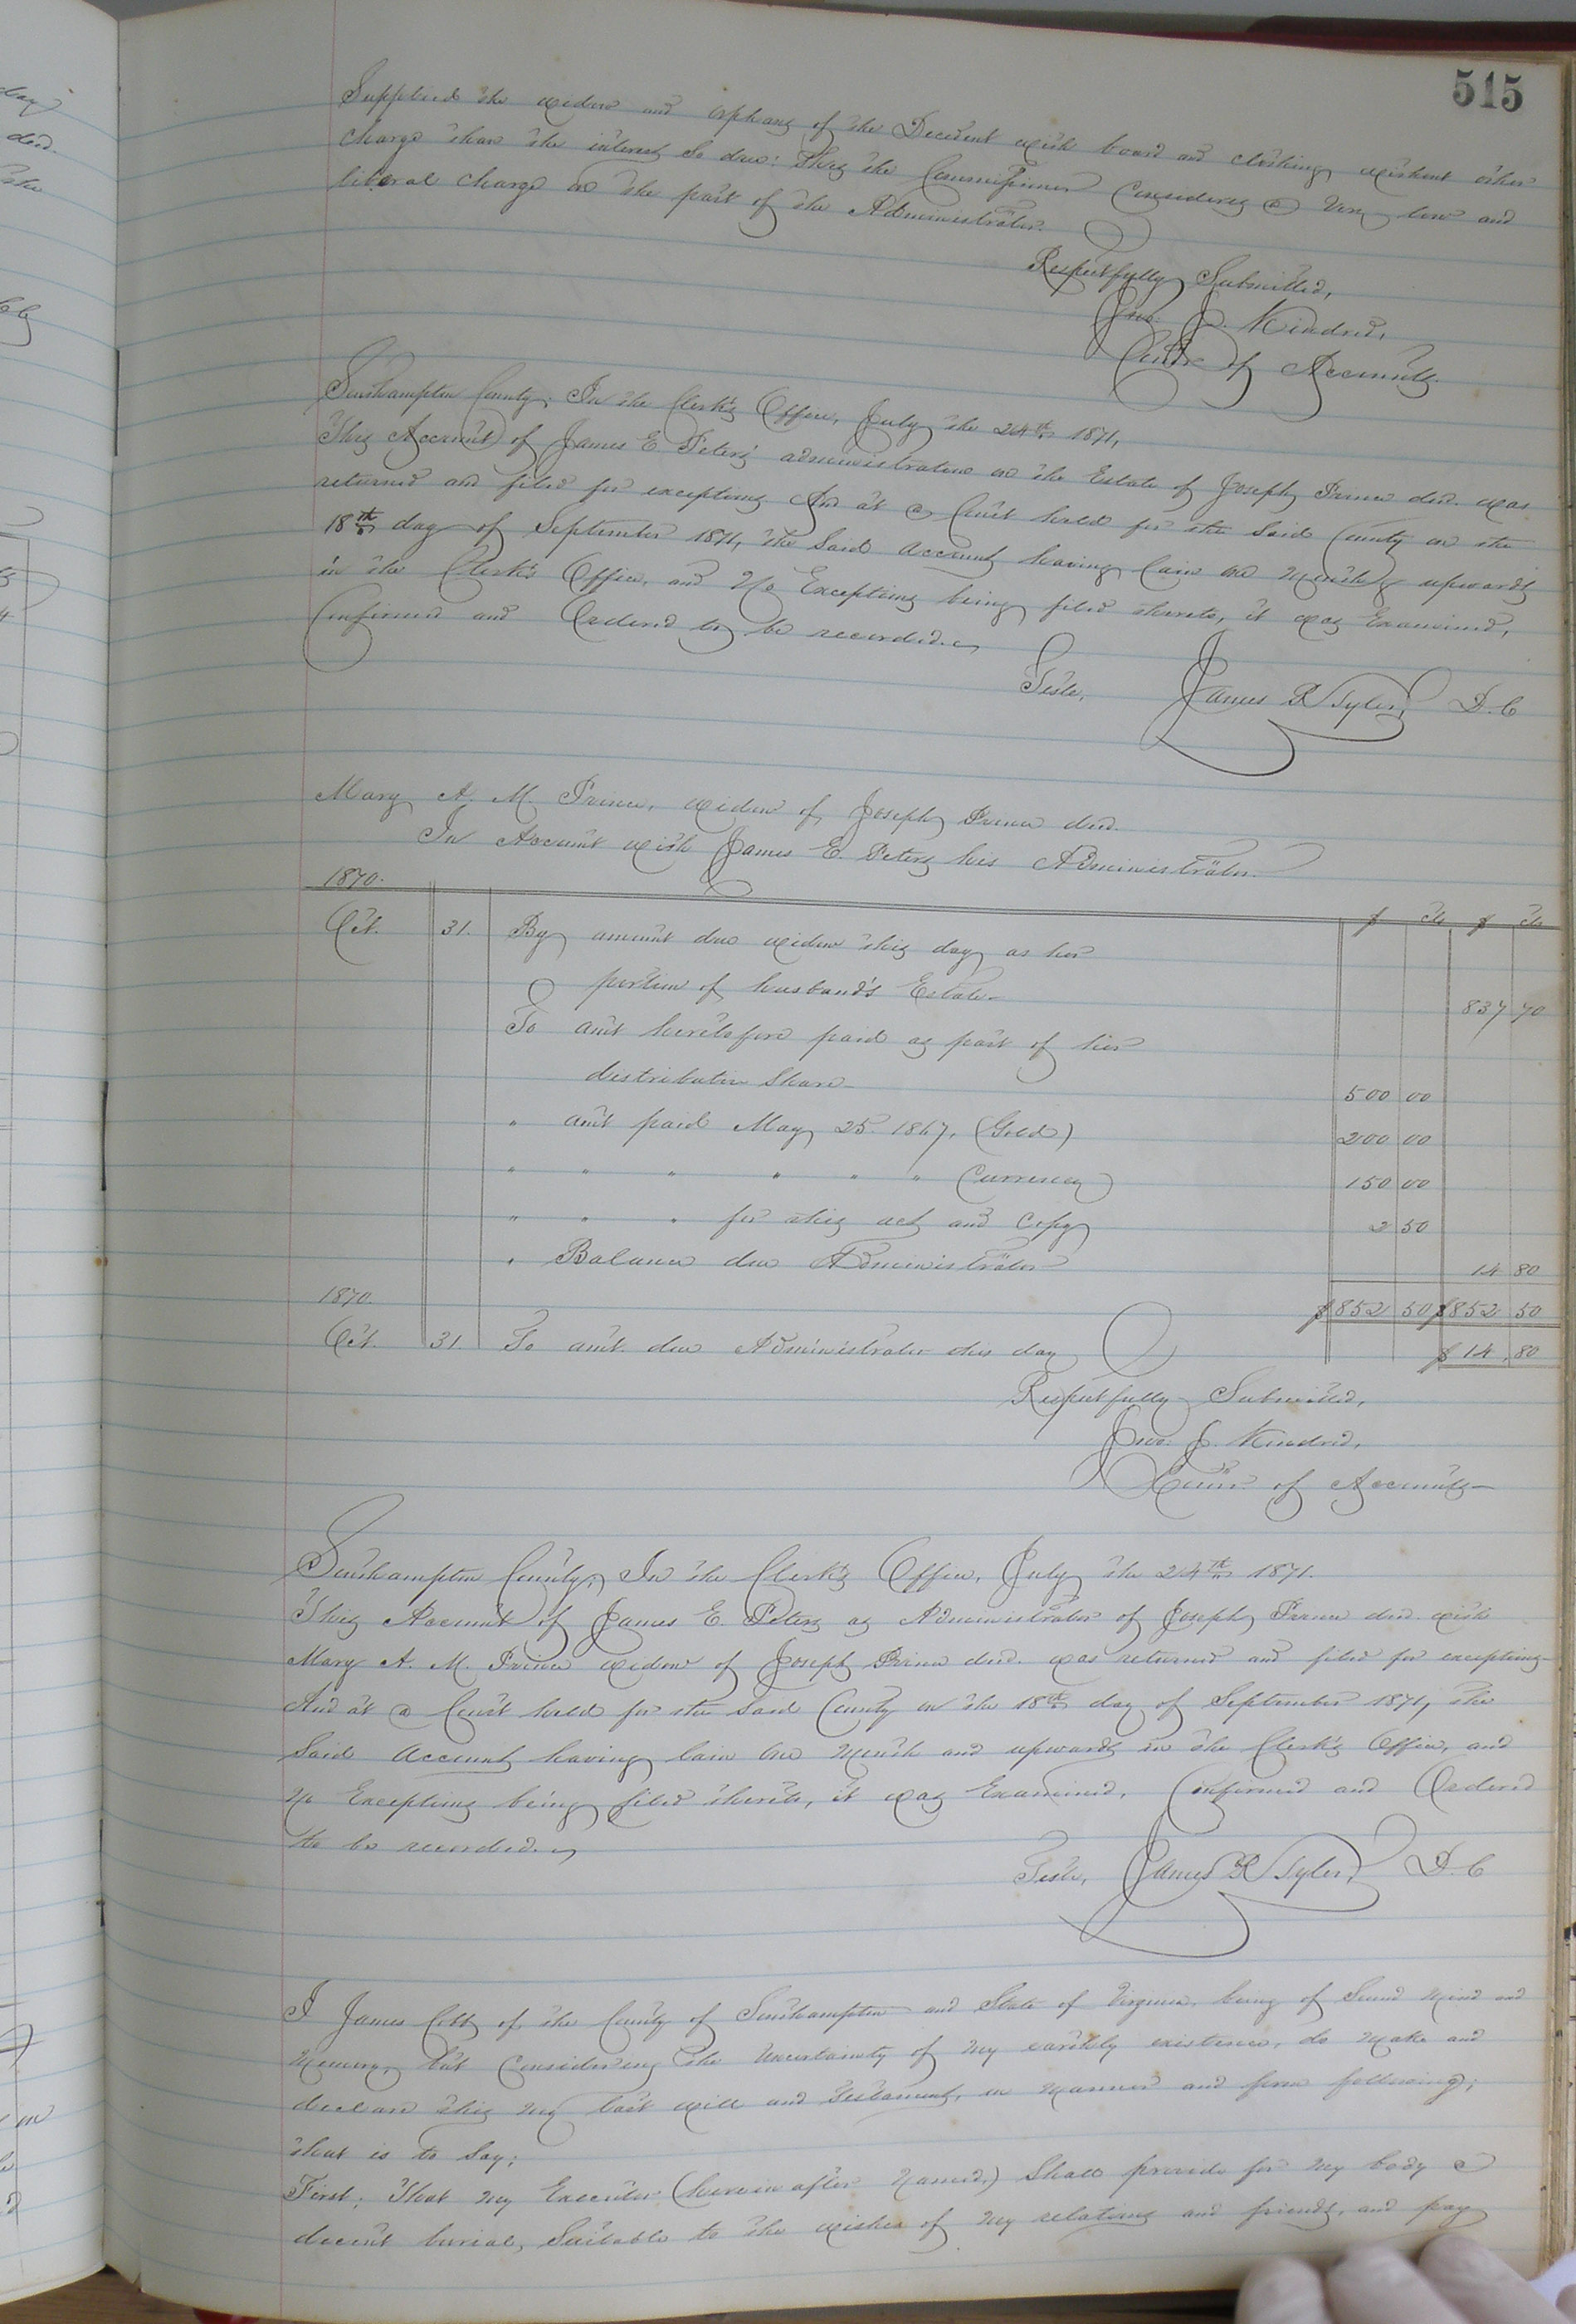 515
Supplied the widow and orphans of the Decedent with board and clothing, without other
charge than the interest so due: This the Commissioner considers a very low and
liberal charge on the part of the Administrator.
Respectfully Submitted,
Jno. J. Kindred,
Comr of Accounts.
Southampton County; In the Clerk's Office, July the 24th 1871,
This Account of James E Peters' administration on the Estate of Joseph Prince decd. was
returned and filed for exceptions. And at a Court held for the said County on the
18th day of September 1871, the said account having lain one month & upwards
in the Clerk's Office, and no Exceptions being filed thereto, it was Examined,
Confirmed and Ordered to be recorded.
Teste, James R Tyler, D. C
Mary A. M. Prince, widow of Joseph Prince decd.
In Account with James E. Peters his Administrator.
1870. $ cts $ cts
Oct. 31. By amount due widow this day as her
portion of husband's Estate 837 70
To amt heretofore paid as part of her
distributive share 500 00
" amt paid May 25. 1867, (Gold) 200 00
" " " " " " Currency 150 00
" " " for this act and copy 2 50
" Balance due Administrator 14 80
1870. $852 50 $852 50
Oct. 31. To amt. due Administrator this day $14.80
Respectfully Submitted,
Jno. J. Kindred,
Comr of Accounts
Southampton County; In the Clerk's Office, July the 24th 1871.
This Account of James E. Peters as Administrator of Joseph Prince decd. with
Mary A. M. Prince widow of Joseph Prince decd. was returned and filed for exceptions
And at a Court held for the said County on the 18th day of September 1871, the
said account having lain one month and upwards in the Clerk's Office, and
no Exceptions being filed thereto, it was Examined, Confirmed and Ordered
to be recorded.
Teste, James R Tyler, D. C
I James Cobb of the County of Southampton and State of Virginia, being of Sound mind and
memory, but considering the uncertainty of my earthly existence, do make and
declare this my last will and testament, in manner and form following;
that is to say;
First; That my Executor (herein after named,) shall provide for my body a
decent burial, suitable to the wishes of my relations and friends, and pay